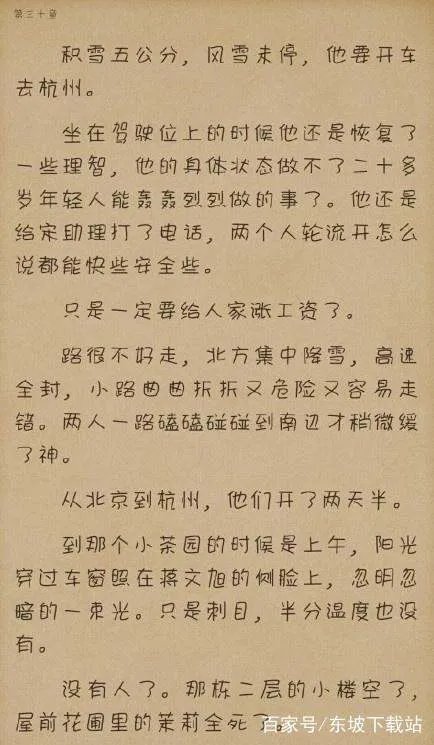 第三十章
积雪五公分，风雪未停，他要开车
去杭州。
坐在驾驶位上的时候他还是恢复了
一些理智，他的身体状态做不了二十多
岁年轻人能轰轰烈烈做的事了。他还是
给宋助理打了电话，两个人轮流开怎么
说都能快些安全些。
只是一定要给人家涨工资了。
路很不好走，北方集中降雪，高速
全封，小路曲曲折折又危险又容易走
错。两人一路磕磕碰碰到南边才稍微缓
了神。
从北京到杭州，他们开了两天半。
到那个小茶园的时候是上午，阳光
穿过车窗照在蒋文旭的侧脸上，忽明忽
暗的一束光。只是刺目，半分温度也没
有。
没有人了。那栋二层的小楼空了，
屋前花圃里的茉莉全死了。
百家号/东坡下载站